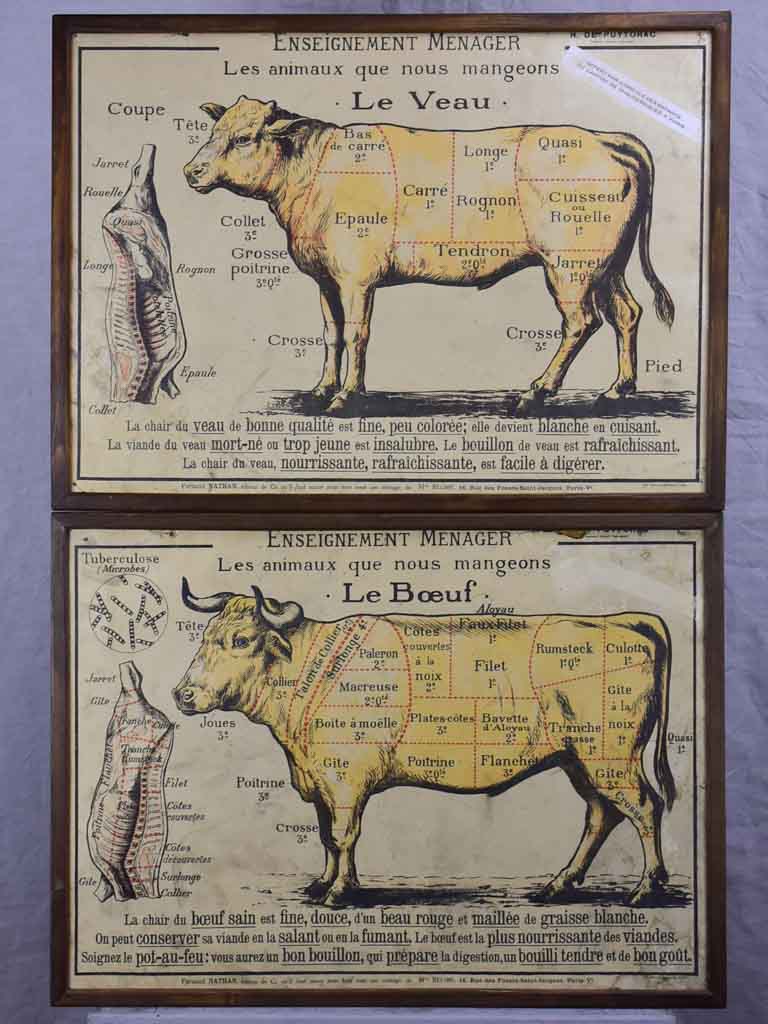 ENSEIGNEMENT MENAGER
Les animaux que nous mangeons
· Le Veau ·
Coupe
Tête
3e
Bas
de carré
2e
Longe
1e
Quasi
1e
Jarret
Rouelle
Quasi
Longe
Rognon
Epaule
Collet
Carré
1e
Rognon
1e
Cuisseau
ou
Rouelle
1e
Epaule
2e
Collet
3e
Grosse
poitrine
3eQté
Tendron
2eQté
Jarret
1eQté
Crosse
3e
Crosse
3e
Pied
La chair du veau de bonne qualité est fine, peu colorée; elle devient blanche en cuisant.
La viande du veau mort-né ou trop jeune est insalubre. Le bouillon de veau est rafraîchissant.
La chair du veau, nourrissante, rafraîchissante, est facile à digérer.
Fernand NATHAN, 16, Rue des Fossés-Saint-Jacques, Paris-Ve
ENSEIGNEMENT MENAGER
Les animaux que nous mangeons
· Le Bœuf ·
Tuberculose
(Microbes)
Tête
3e
Aloyau
Faux-Filet
1e
Jarret
Gîte
Tranche
Culotte
Tranche
Rumsteck
Filet
Côtes
couvertes
Côtes
découvertes
Surlonge
Collier
Gîte
Poitrine
Flanchet
Collier
3e
Talon de Collier
Surlonge
Paleron
2e
Côtes
couvertes
à la
noix
2e
Filet
1e
Rumsteck
1eQté
Culotte
1e
Macreuse
2eQté
Gîte
à la
noix
1e
Joues
3e
Boîte à moëlle
3e
Plates-côtes
3e
Bavette
d'Aloyau
2e
Tranche
grasse
1e
Quasi
1e
Gîte
3e
Poitrine
3eQté
Flanchet
3e
Gîte
3e
Poitrine
3e
Crosse
3e
Crosse
3e
La chair du bœuf sain est fine, douce, d'un beau rouge et maillée de graisse blanche.
On peut conserver sa viande en la salant ou en la fumant. Le bœuf est la plus nourrissante des viandes.
Soignez le pot-au-feu: vous aurez un bon bouillon, qui prépare la digestion, un bouilli tendre et de bon goût.
Fernand NATHAN, 16, Rue des Fossés-Saint-Jacques, Paris-Ve